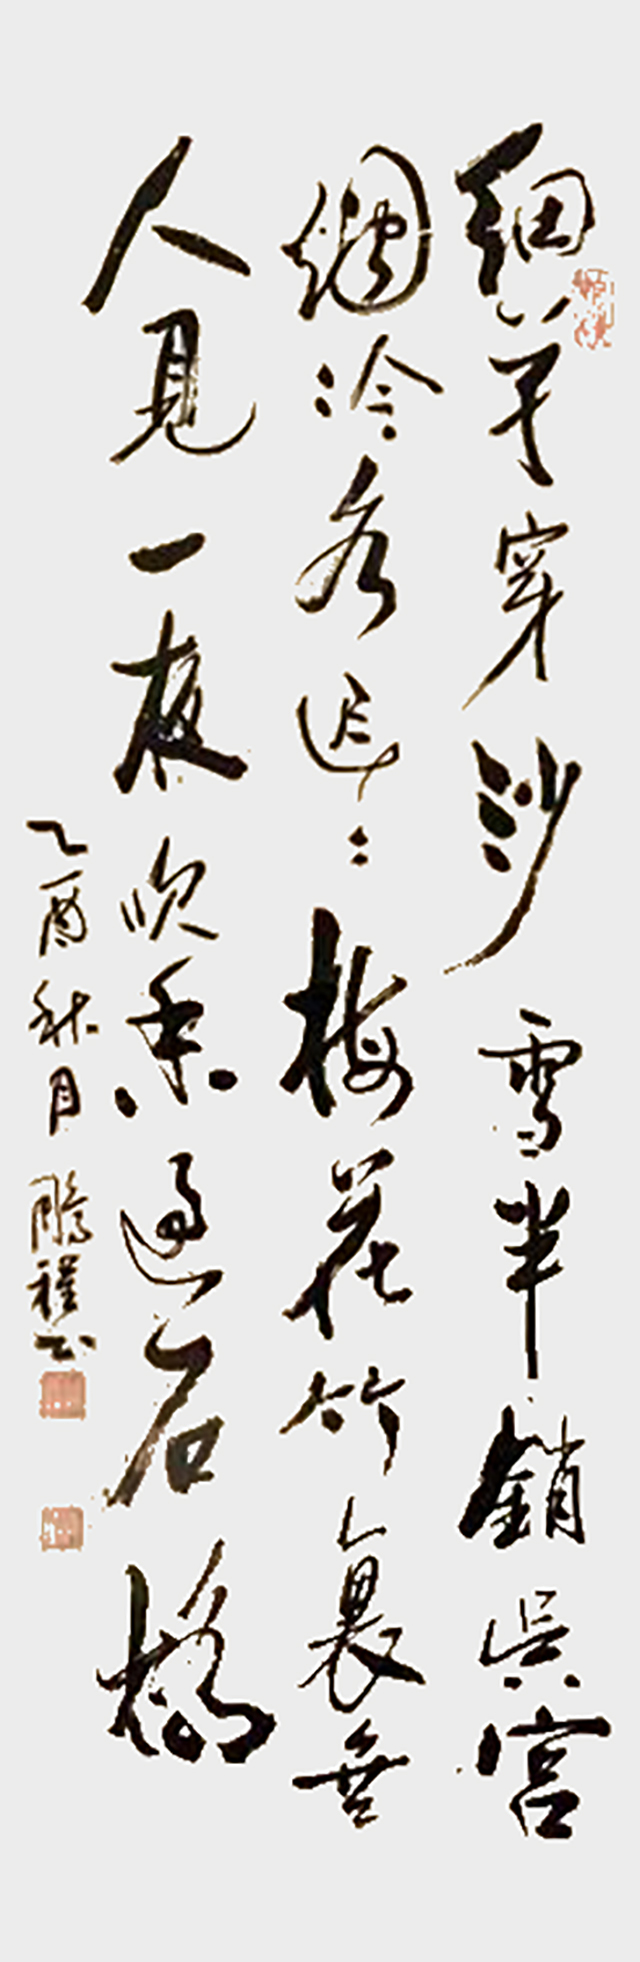 細草穿沙雪半銷吳宮
烟冷水迢迢梅花竹裏無
人見一夜吹香過石橋
乙酉秋月鵬程书